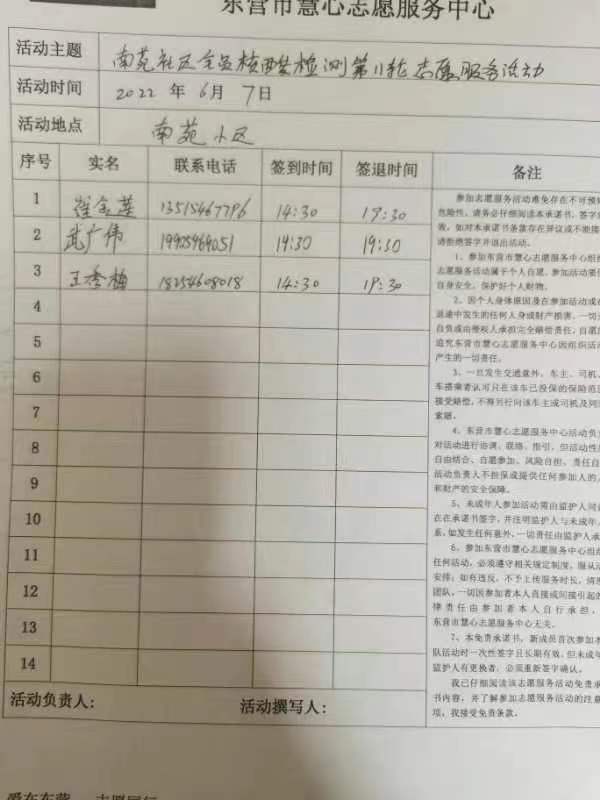 东营市慧心志愿服务中心
活动主题 南苑社区全员核酸检测第11轮志愿服务活动
活动时间 2022 年 6月 7日
活动地点 南苑小区
序号 实名 联系电话 签到时间 签退时间 备注
1 崔金莲 13515467796 14:30 19:30
2 武广伟 19925969051 14:30 19:30
3 王秀梅 18254608018 14:30 19:30
4
5
6
7
8
9
10
11
12
13
14
参加志愿服务活动难免存在不可预
危险性，请务必仔细阅读本承诺书，签字
效，如对本承诺书条款存在异议或不能接
请拒绝签字并退出活动。
1、参加东营市慧心志愿服务中心组
志愿服务活动属于个人自愿，参加活动要
自身安全，保护好个人财物。
2、因个人身体原因及在参加活动或
返途中发生的任何人身或财产损害，一切
自负或由侵权人承担完全赔偿责任，自愿
追究东营市慧心志愿服务中心因组织活动
产生的一切责任。
3、一旦发生交通意外，车主、司机、
车搭乘者认可只在该车已投保的保险范
接受赔偿，不得另行向该车主或司机及同
索赔。
4、东营市慧心志愿服务中心活动负
对活动进行协调、联络、指引，但活动性
自由结合、自愿参加、风险自担、责任自
活动负责人不担保或提供任何参加人的人
和财产的安全保障。
5、未成年人参加活动需由监护人同
在在承诺书签字，并注明监护人与未成年
系，如发生任何意外，一切责任由监护人承
6、参加东营市慧心志愿服务中心组
任何活动，必须遵守相关规定制度，服从
安排；如有违反，不予上传服务时长，清
团队，一切因参加者本人直接或间接引起
律责任由参加者本人自行承担，
东营市慧心志愿服务中心无关。
7、本免责承诺书，新成员首次参加本
队活动时一次性签字且长期有效，但未成年
监护人有更换者，必须重新签字确认。
我已仔细阅读该志愿服务活动免责承
书内容，并了解参加志愿服务活动的注意
项，我接受免责条款。
活动负责人： 活动撰写人：
爱在东营 志愿同行